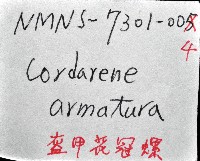 NMNS-7301-005
4
Cordarene
armatura
盔甲花冠螺